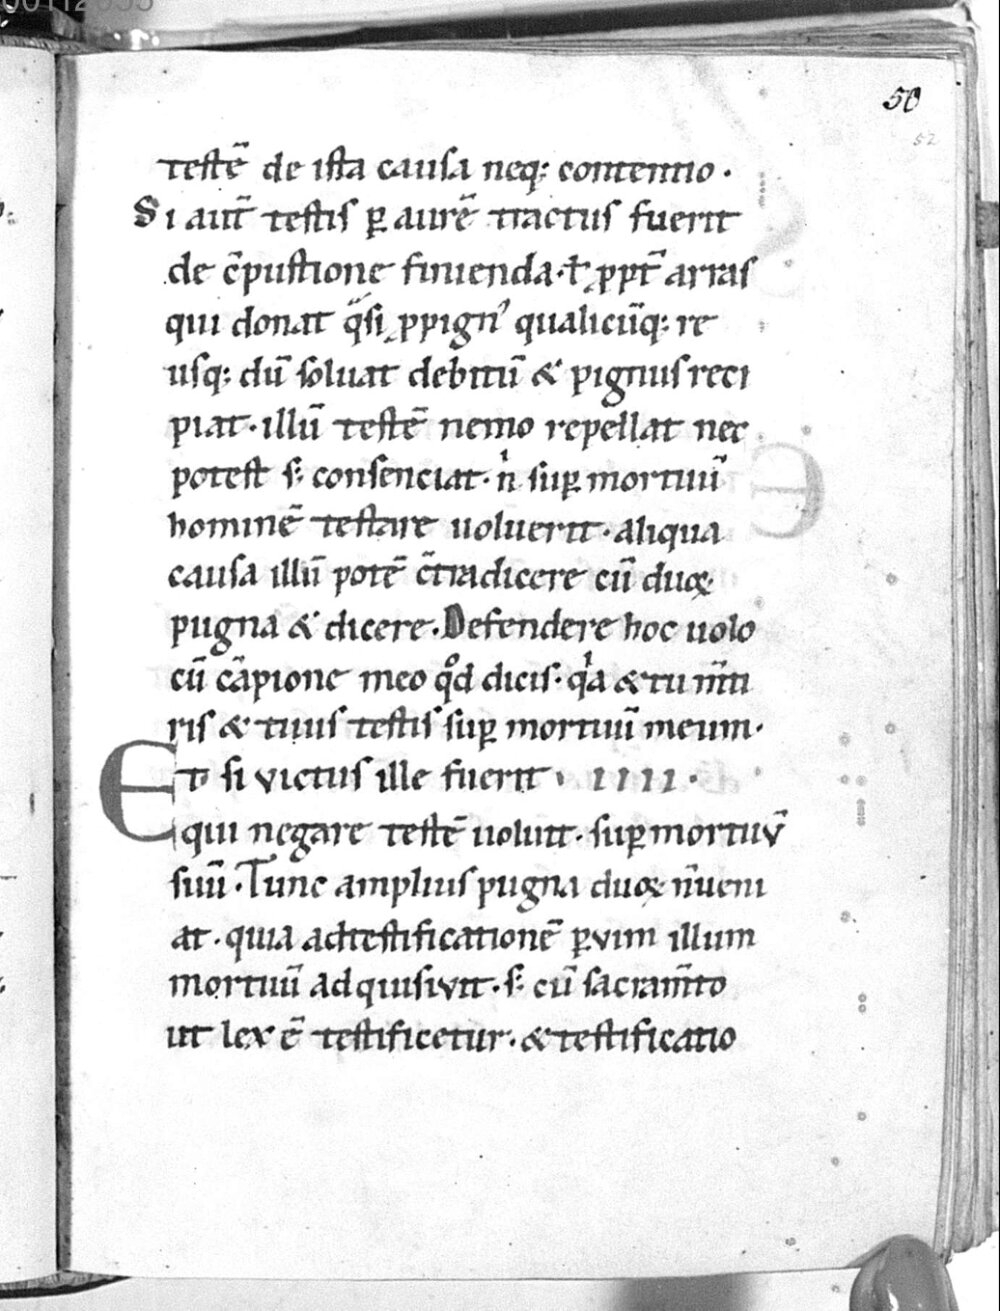 00112053
50
52
testē de ista causa neq; contentio ·
Si aut̄ testis ꝑ aurē tractus fuerit
de c̄pustione finienda · ł ꝓpt̄ arras
qui donat q̈si ꝓpign᾽ qualicūq; re
usq; dū soluat debitū & pignus reci
piat · illū testē nemo repellat nec
potest s; consenciat · n̍ suꝑ mortuū
hominē testare uoluerit · aliqua
causa illū potē c̄tradicere cū duoꝝ
pugna & dicere. Defendere hoc uolo
cū cāpione meo qͦd dicis · qͥa & tu m̄ti
ris & tuus testis suꝑ mortuū meum ·
Et si victus ille fuerit · IIII ·
qui negare testē uoluit · suꝑ mortuū
suū · Tunc amplius pugna duoꝝ n̄ ueni
at · quia adtestificationē ꝑ vim illum
mortuū adquisivit · s; cū sacram̄to
ut lex ē testificetur · & testificatio